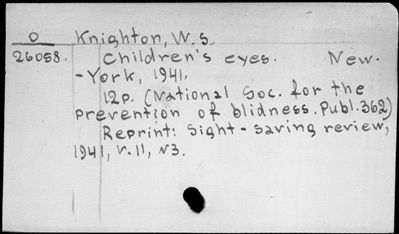 O Knighton, W. S.
26058. Children's eyes. New.
-York, 1941.
12p. (National Soc. for the
prevention of blidness. Publ. 362)
Reprint: Sight-saving review,
1941, v. 11, N3.